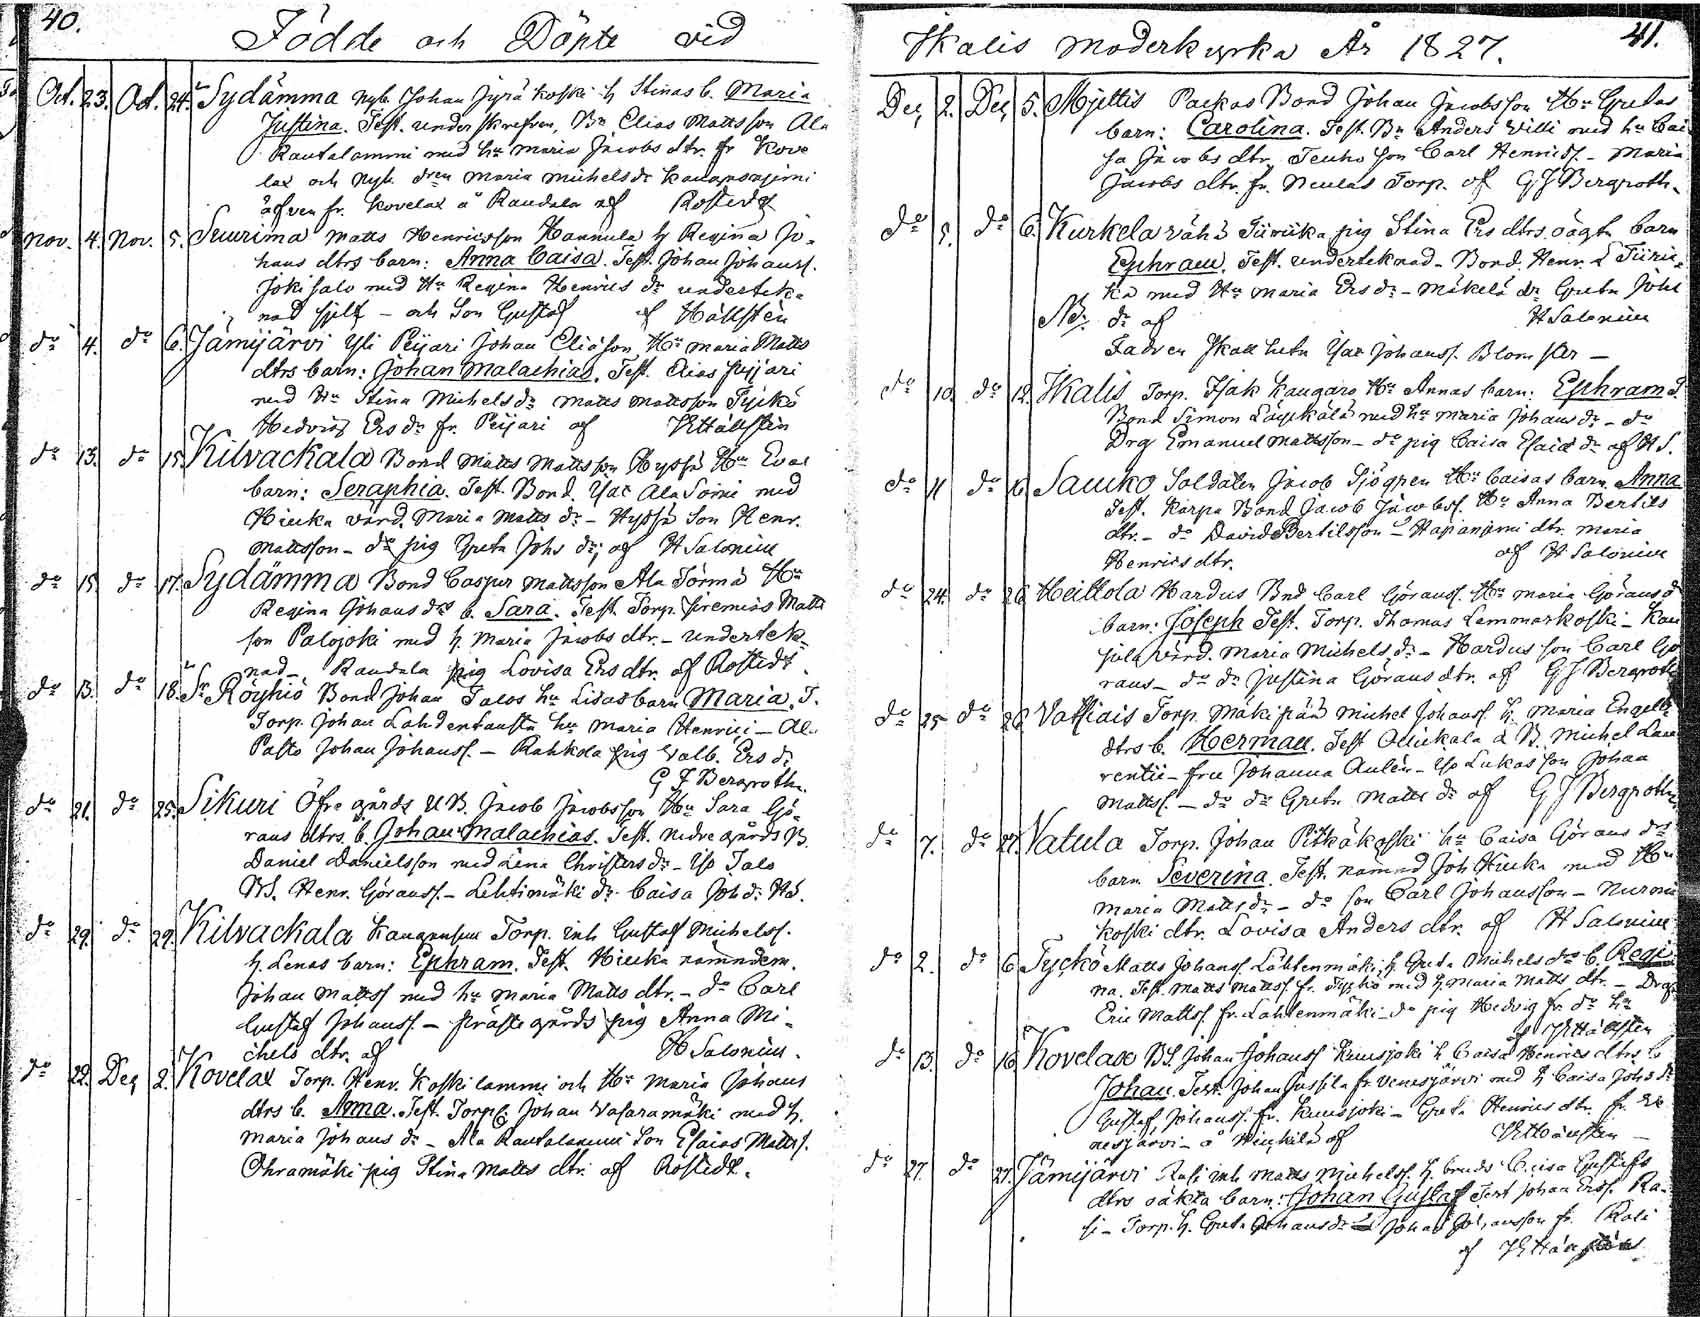 40.
Födde och Döpte vid
Oct. 23. Oct. 24. Sydämma nyb. Johan Jyräkoski h Stinas b. Maria
Justina. Test. underskrefven, Bn Elias Mattsson Ala
Rautalammi med hu Maria Jacobs dtr. fr Kove
lax och nyb. dren Maria Michels dr
äfven fr. Kovelax a Raudala af Rostedt
Nov. 4. Nov. 5. Suurima Matts Henricsson Hannula h Regina Jo-
hans dtrs barn: Anna Caisa. Test. Johan Johanss.
Jokisalo med Hu Regina Henrics dr underteck-
nad sjelf - och Son Gustaf af Hällsten
do 4. do 6. Jämijärvi Yli Peijari Johan Eliasson Hu Maria Matts
dtrs barn: Johan Malachias. Test. Elias Peijari
med Hu Stina Michels dr Matts Mattsson Tyckö
Hedvig Ers dr fr. Peijari af Hällsten
do 13. do 15. Kilvackala Bond Matts Mattsson Hyssä Hu Evas
barn: Seraphia. Test. Bond. Isac Ala Soini med
Hiucka värd. Maria Matts dr - Hyssä Son Henr.
Mattsson - do pig Greta Johs dr, af H Salonius
do 15. do 17. Sydämma Bond Casper Mattsson Ala Törmä Hu
Regina Johans drs b. Sara. Test. Torp. Jeremias Matts
son Palojoki med h Maria Jacobs dtr. - underteck-
nad - Raudala pig Lovisa Ers dtr. af Rostedt.
do 13. do 18. Sr Röyhiö Bond Johan Talos hu Lisas barn Maria. T.
Torp. Johan Lahdentausta hu Maria Henrici - Al-
Pasto Johan Johanss. - Rahkola pig Valb. Ers dr
G J Bergroth.
do 21. do 25. Sikuri Öfre gårds UB. Jacob Jacobsson Hu Sara Gö-
rans dtrs b. Johan Malachias. Test. nedre gårds B.
Daniel Danielsson med Lena Christers dr - Iso Talo
BS. Henr. Göranss. - Lehtimäki dr Caisa Joh dr Hä.
do 29. do 29. Kilvackala Torp. inh Gustaf Michelss.
h. Lenas barn: Ephram. Test. Hiucka nämndem.
Johan Mattss med hu Maria Matts dtr. - do Carl
Gustaf Johanss. - prästegårds pig Anna Mi-
chels dtr. af H Salonius.
do 22. Dec 2. Kovelax Torp. Henr. Koskilammi och Hu Maria Johans
dtrs b. Anna. Test. Torp. Johan Vasaramäki med h.
Maria Johans dr - Ala Rautalammi Son Esaias Mattss.
Ohramäki pig Stina Matts dtr. af Rostedt.
41.
Ikalis Moderkyrka År 1827.
Dec 2. Dec 5. Mjettis Packas Bond Johan Jacobsson Hu Gretas
barn: Carolina. Test. Bn Anders Villi med hu Cai
sa Jacobs dtr, Teuho Son Carl Henricss. - Maria
Jacobs dtr. fr. Neulas Torp. af G J Bergroth.
do 5. do 6. Kurkela vähä Tiirika pig Stina Ers dtrs oägta barn
Ephram. Test. undertecknad - Bond. Henr. L Tiiric-
ka med Hu Maria Ers dr - Mäkelä dr Greta Johs
NB. dr af H Salonius
Fadren Skall heta Isac Johanss. Blomster -
do 10. do 12. Ikalis Torp. Isak Kangaro Hu Annas barn: Ephram d.
Bond Simon Läykälä med hu Maria Johans dr - do
Drg Emanuel Mattsson - do pig Caisa Esaias dr af H S.
do 11 do 16 Sauko Soldaten Jacob Sjögren Hu Caisas barn. Anna
Test. Karpa Bond Jacob Jacobss. Hu Anna Bertils
dtr. - do David Bertilsson - Hapaniemi dtr. Maria
Henrics dtr. af H Salonius
do 24. do 26 Heittola Hardus Bnd Carl Göranss. Hu Maria Görans dr
barn. Joseph Test. Torp. Thomas Lammarkoski - Kau
värd. Maria Michels dr - Hardus son Carl Gö
rans - do dr Justina Görans dtr. af G J Bergroth
do 25 do 26 Vatsiais Torp. Mäkipää Michel Johanss. h. Maria Engelb.
dtrs b. Herman. Test a B. Michel Lau
rentii - fru Johanna Aulén - Iso Lukas son Johan
Mattss. - do dr Greta Matts dr af G J Bergroth
do 7. do 27. Vatula Torp. Johan Pitkäkoski hu Caisa Görans drs
barn Severina. Test. nämnd Joh Hiucka med Hu
Maria Matts dr - do son Carl Johansson - Nurmi
koski dtr. Lovisa Anders dtr. af H Salonius
do 2. do 6 Tyckö Matts Johanss. Lähtenmäki h Greta Michels drs b. Regi
na. Test. Matts Mattss. fr. Tyckö med h Maria Matts dtr. - Drg
Eric Mattss. fr. Lahtenmäki - do pig Hedvig fr. do hu
af Hällsten
do 13. do 16. Kovelax BS. Johan Johanss Kuusjoki h Caisa Henrics dtrs b
Johan. Test. Johan Jussila fr. Venesjärvi med h Caisa Johs dr
Gustaf Johanss. fr. Kuusjoki - Greta Henrics dtr. fr. Ve
nesjärvi - a af Hällsten
do 27. do 27. Jämijärvi Rasi inh Matts Michelss. h. Caisa Gustafs
dtrs oäkta barn: Johan Gustaf Test Johan Erss. Ra-
si - Torp. h. Greta Johans dr Johan Johansson fr. Rasi
af